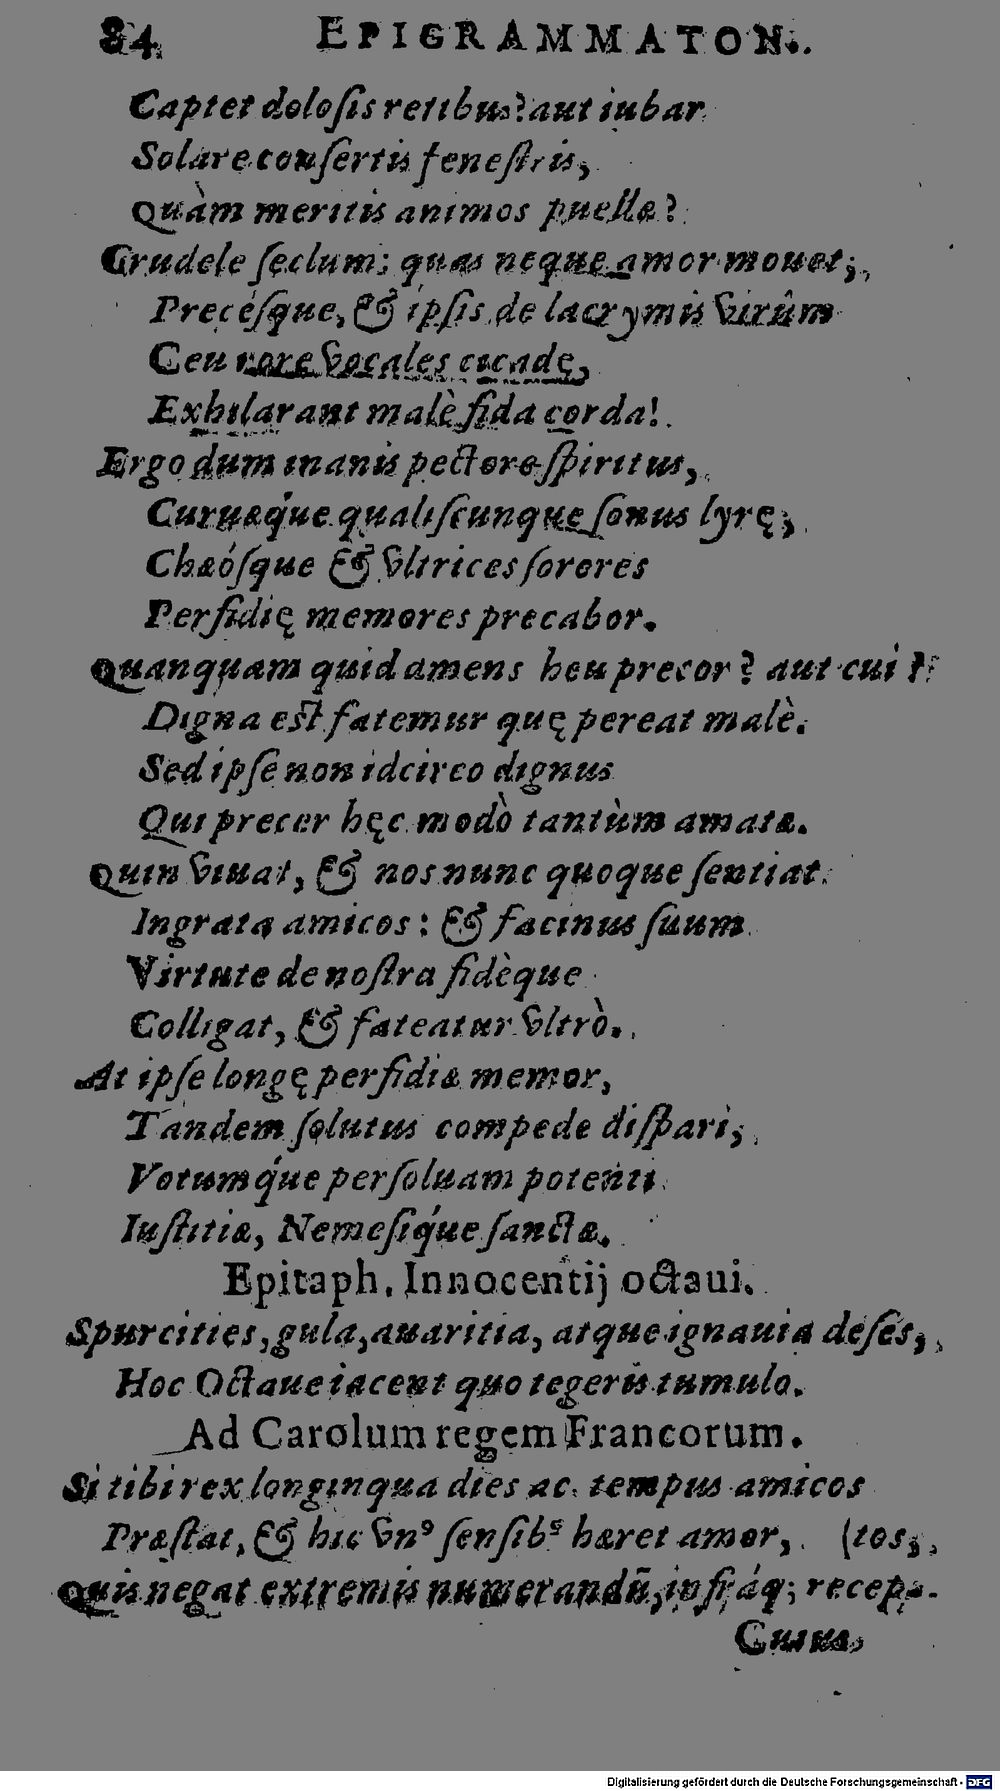 84 EPIGRAMMATON.
Captet dolosis retibus? aut iubar
Solare consertis fenestris,
Quàm meritis animos puellæ?
Crudele seclum: quas neque amor mouet;
Precésque, & ipsis de lacrymis virûm
Ceu rore vocales cicadę,
Exhilarant malè fida corda!
Ergo dum inanis pectore spiritus,
Curuæq́ue qualiscunque sonus lyrę;
Chaósque & vltrices sorores
Perfidię memores precabor.
Quanquam quid amens heu precor? aut cui?
Digna est fatemur quę pereat malè.
Sed ipse non idcirco dignus
Qui precer hęc modò tantùm amatæ.
Quin viuat, & nos nunc quoque sentiat
Ingrata amicos: & facinus suum
Virtute de nostra fidèque
Colligat, & fateatur vltrò.
At ipse longę perfidiæ memor,
Tandem solutus compede dispari,
Votumq́ue persoluam potenti
Iustitiæ, Nemesiq́ue sanctæ.
Epitaph. Innocentij octaui.
Spurcities, gula, auaritia, atque ignauia deses,
Hoc Octaue iacent quo tegeris tumulo.
Ad Carolum regem Francorum.
Si tibi rex longinqua dies ac tempus amicos
Præstat, & hic vnꝰ sensibꝰ hæret amor, (tos,
Quis negat extremis numerandũ, ipsáq; recep-
Cuius
Digitalisierung gefördert durch die Deutsche Forschungsgemeinschaft - DFG